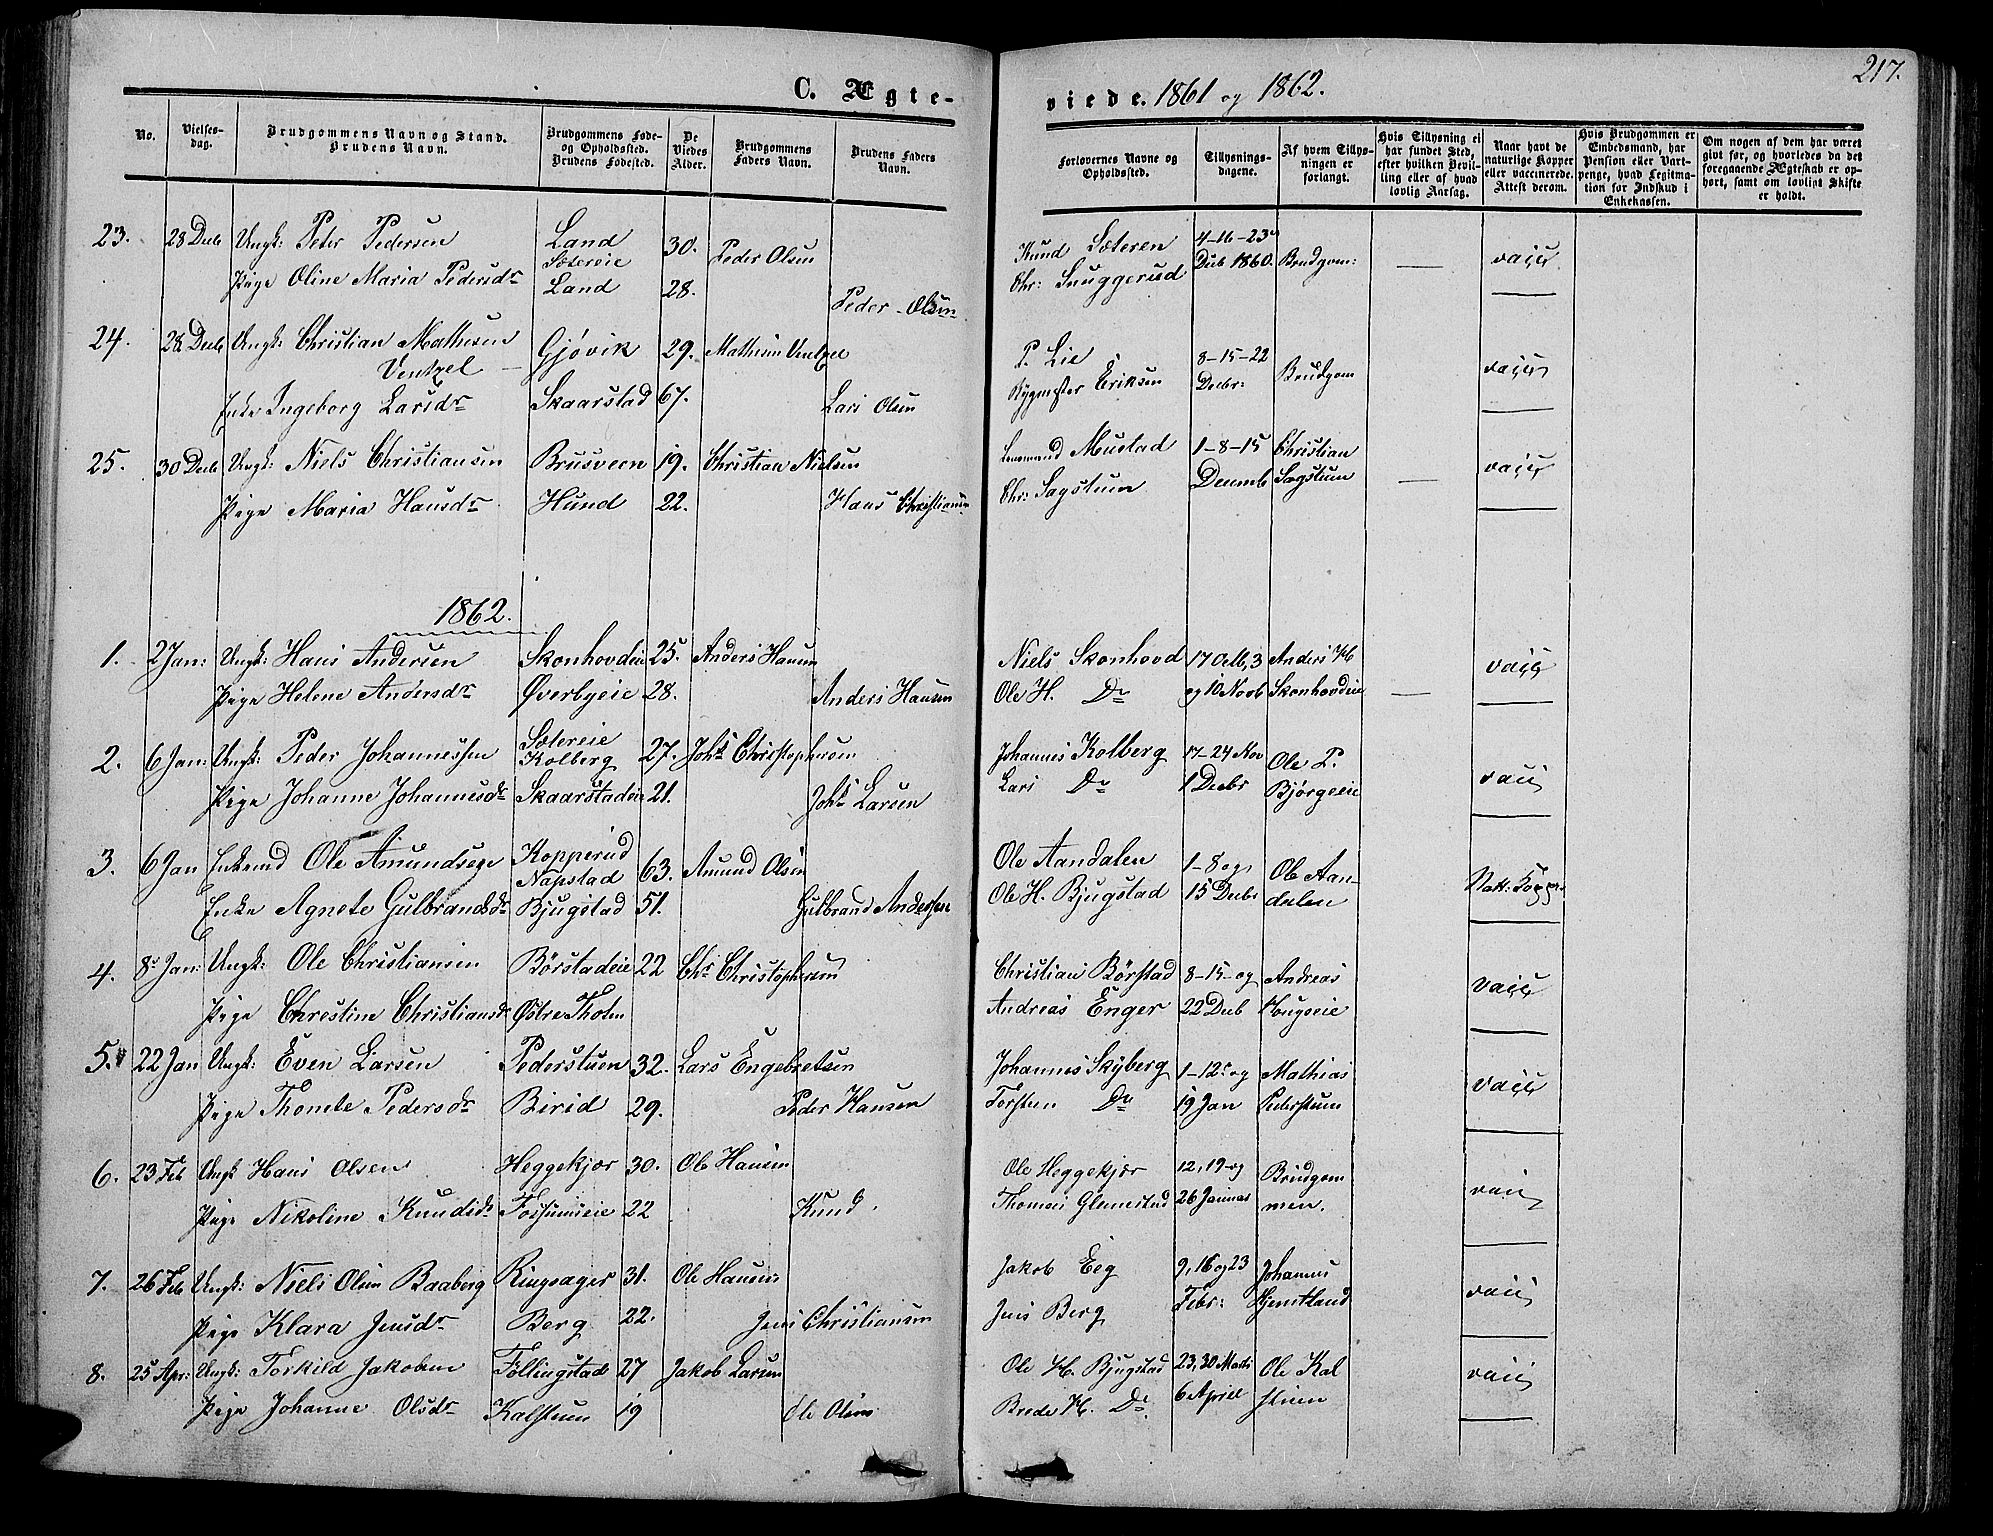 217.
C. Ægte-
viede. 1861 og 1862.
No.
Vielses-
dag.
Brudgommens Navn og Stand.
Brudens Navn.
Brudgommens Føde-
og Opholdssted.
Brudens Fødested.
De
Viedes
Alder.
Brudgommens
Faders Navn.
Brudens Faders
Navn.
Forlovernes Navne og
Opholdssted.
Tillysnings-
dagene.
Af hvem Tillys-
ningen er
forlangt.
Hvis Tillysning ei
har fundet Sted,
efter hvilken Bevil-
ling eller af hvad
lovlig Aarsag.
Naar havt de
naturlige Kopper
eller vaccinerede.
Attest derom.
Hvis Brudgommen er
Embedsmand, har
Pension eller Vart-
penge, hvad Legitima-
tion for Indskud i
Enkekassen.
Om nogen af dem har været
givt før, og hvorledes da det
foregaaende Ægteskab er op-
hørt, samt om lovligt Skifte
er holdt.
23. 28 Decb Ungk: Peter Pedersen Land Sætereie 30. Peder Olsen Knud Sæteren 4-16-23 Decb 1860. Brudgom: — vacc
Pige Oline Maria Pedersdr Land 28. Peder Olsen Chr: Snuggerud —
24. 28 Decb Ungk: Christian Mathisen Ventzel Gjøvik 29. Mathias Ventzel P. Lie 8-15-22 Decbr: Brudgom vacc
Enke Ingeborg Larsdr Skaarstad 67. Lars Olsen Bygmester Eriksen —
25. 30 Decb Ungk: Niels Christiansen Brusveen 19. Christian Nielsen Lensmand Mustad 1-8-15 Christian vacc
Pige Maria Hansdr Hund 22. Hans Christiansen Chr: Sagstuen Decemb Sagstuen — —
1862.
1. 2 Jan: Ungk: Hans Andersen Skonhovdeie 25. Anders Hansen Niels Skonhovd 17 Octb, 3 Anders H vacc
Pige Helene Andersdr Øverbyeie 28. Anders Hansen Ole H. Do og 10 Novb Skonhovdeie — —
2. 6 Jan: Ungk: Peder Johannessen Sætereie Kolberg 27. Johs Christophersen Johannes Kolberg 17-24 Nov Ole P. vacc
Pige Johanne Johannesdr Skaarstadeie 21. Johs Larsen Lars Do 1 Decbr Bjørgeeie —
3. 6 Jan Enkemd Ole Amundsen Kopperud Napstad 63. Amund Olsen Ole Aandalen 1-8 og Ole Aan- Natt: Kopper
Enke Agnete Gulbrandsdr Bjugstad 51. Gulbrand Andersen Ole H. Bjugstad 15 Decbr dalen —
4. 8 Jan: Ungk: Ole Christiansen Børstadeie 22 Chr Christophersen Christian Børstad 8-15-og Andreas vacc
Pige Chrestine Christiansdr Østre Thoten Andreas Enger 22 Decb —
5. 22 Jan Ungk: Even Larsen Pederstuen 32. Lars Engebretsen Johannes Skyberg 1-12 og Mathias vacc
Pige Thonete Pedersdr Birid 29. Peder Hansen Torsten Do 19 Jan Pederstuen —
6. 23 Feb Ungk Hans Olsen Heggekjær 30. Ole Hansen Ole Heggekjær 12, 19-og Brudgom vacc
Pige Nikoline Knudsdr Fossumseie 22 Knud Thomas Glemestad 26 Januar men. —
7. 26 Feb Ungk: Niels Olsen Baaberg Ringsager 31. Ole Hansen Jakob Eeg 9, 16 og 23 Johannes vacc
Pige Klara Jensdr Berg 22. Jens Christiansen Jens Berg Febr: Hjemstland —
8. 25 Apr: Ungk: Torkild Jakobsen Føllingstad 27 Jakob Larsen Ole H. Bjugstad 23, 30 Marts Ole Kal vacc
Pige Johanne Olsdr Kalstuen 19 Ole Olsen Brede H. Do 6 April stuen —